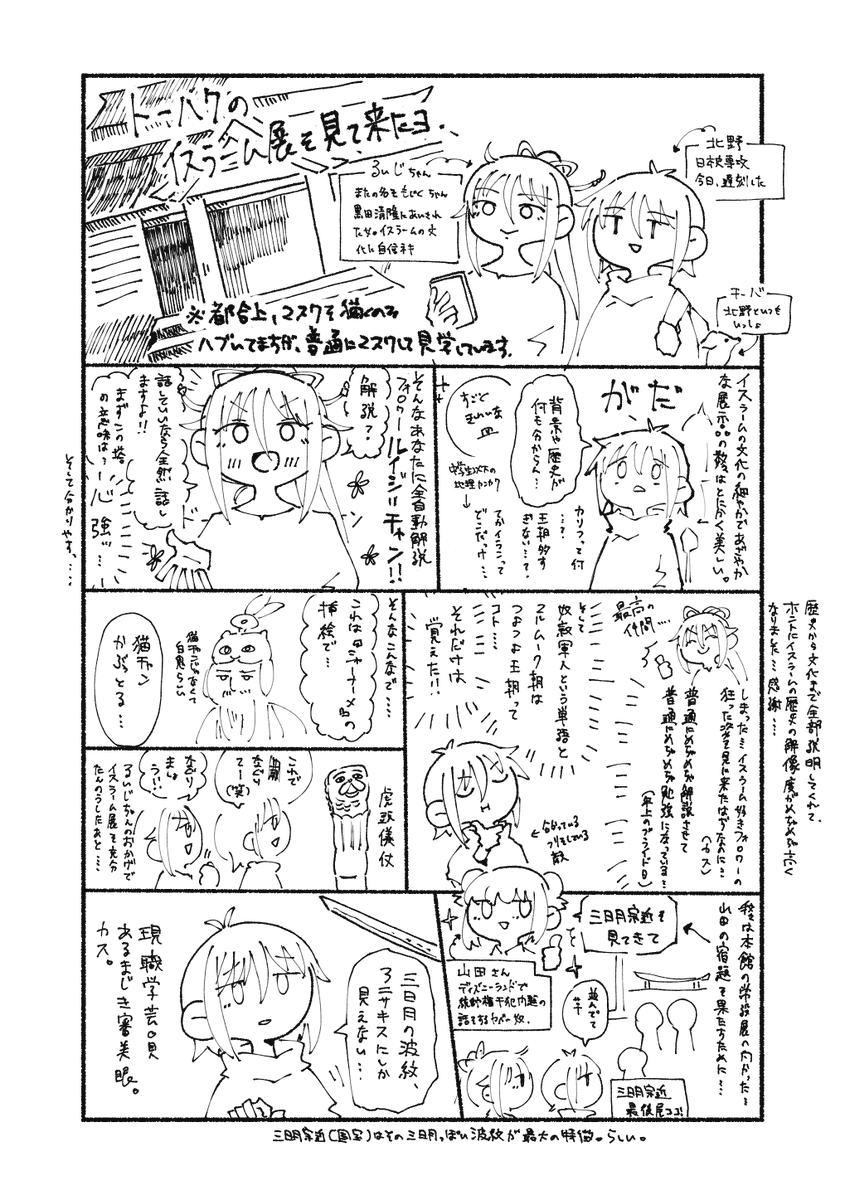 トーハクの
イスラーム展を見て来たヨ.
るいじちゃん
またの名をもじくちゃん
黒田清隆にあいされ
たがる。イスラームの文
化に自信ネキ
北野
日本史専攻
今日、遅刻した
チーバ
北野といつも
いっしょ
※都合上、マスクを描くのを
ハブいてますが、普通にマスクして見学しています.
イスラームの文化の細やかであざやか
な展示品の数々はとにかく美しい。
がだ
背景や歴史が
何も分からん…
カリフって何
…?
王朝多す
ぎない…?
てかイランって
どこだっけ…
中学生以下の
地理カンカク
なんと
きれいな
皿
そんなあなたに全自動解説
フォロワー ルイジ=チャン!!
解説?
話していいなら全然話し
ますよ!!
まずこの塔
の意味は?
心
強ッ…
ドン
そして分かりやす、…
最高の
仲間…
しまった…イスラーム好きフォロワーの
狂った姿を見に来たはずなのに…
(カス)
普通にめちゃめちゃ解説させて
普通にめちゃめちゃ勉強になっている…
(年上のプライド0)
そして
奴隷軍人という単語と
マムルーク朝は
つよつよ王朝って
コト…
それだけは
覚えた!!
←分かっている
フリをしている
顔
歴史から文化まで全部説明してくれて、
ホントにイスラームの歴史の解像度がめちゃめちゃ高く
なりました…感謝〜…
そんなこんなで…
これは『シャー・ナーメ』の
挿絵で…
猫チャン
かぶっとる…
猫チャンじゃなくて
白鬼らしい
虎頭儀仗
これで
なぐり
てー(笑)
なぐり
ましょ
う!!
るいじちゃんのおかげで
イスラーム展を充分
たんのうしたあと…
我々は本館の常設展の向かった…
山田の宿題を果たすために…
三日月宗近を
見てきて
と
山田さん
ディズニーランドで
旅野梅干犯内題の
話をするヤバい奴.
並んでて
草
三日月宗近
最後尾ココ!
三日月の波紋、
アニサキスにしか
見えない…
現職学芸員に
あるまじき審美眼。
カス。
三日月宗近(国宝)はその三日月っぽい波紋が最大の特徴。らしい。